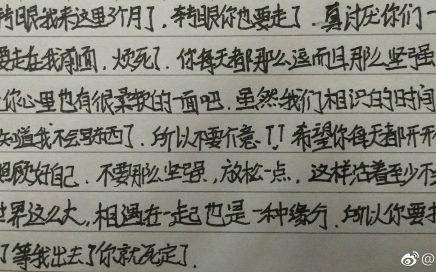 转眼我来这里3个月了、转眼你也要走了、真讨厌你们一
要走在我前面、烦死了、你每天都那么逗而且那么坚强
你心里也有很柔软的一面吧、虽然我们相识的时间
知道我不会写东西了、所以不要介意!! 希望你每天都开开
照顾好自己、不要那么坚强、放松一点、这样活着至少不
世界这么大,相遇在一起也是一种缘分、所以你要
了等我出去了你就死定了、